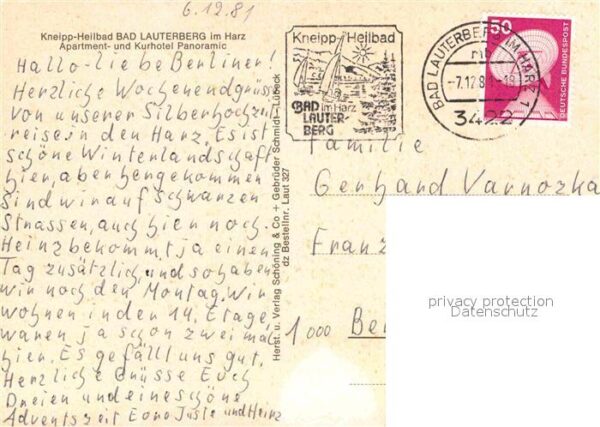 6.12.81
Kneipp-Heilbad BAD LAUTERBERG im Harz
Apartment- und Kurhotel Panoramic
Hallo-liebe Berliner!
Herzliche Wochenendgrüsse
von unserer Silberhochzeits
reise in den Harz. Es ist
schöne Winterlandschaft
hier, aber hergekommen
sind wir auf schwarzen
Strassen, auch hier noch.
Heinz bekommt ja einen
Tag zusätzlich, und so haben
wir noch den Montag. Wir
wohnen in der 14. Etage,
waren ja schon zweimal
hier. Es gefällt uns gut.
Herzliche Grüsse Euch
Dreien und eine schöne
Adventszeit Eure und Heinz
Herst. u. Verlag Schöning & Co + Gebrüder Schmidt - Lübeck
dz Bestellnr. Laut 327
Kneipp-Heilbad
BAD im Harz
LAUTER-
BERG
BAD LAUTERBERG IM HARZ 1
mb
-7.12.81-18
3422
50
DEUTSCHE BUNDESPOST
Familie
Gerhard Varnozka
Franz
1000 Be
privacy protection
Datenschutz